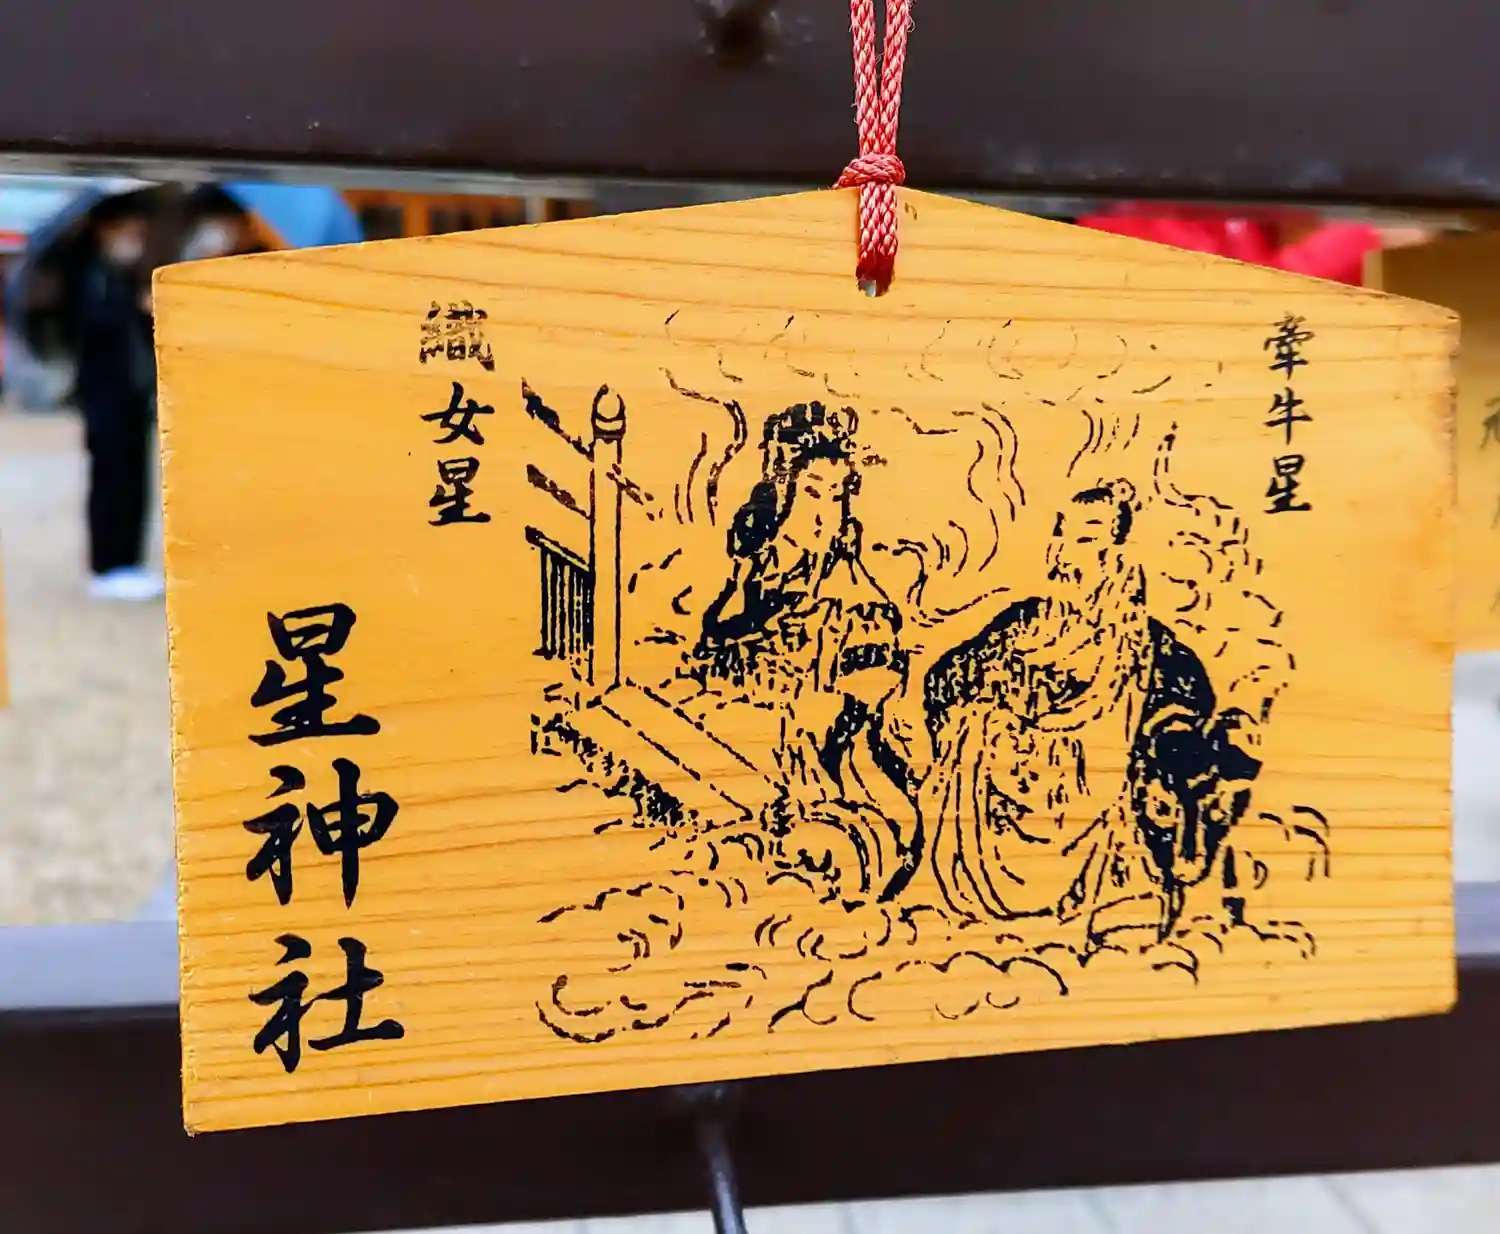 牽牛星
織女星
星神社